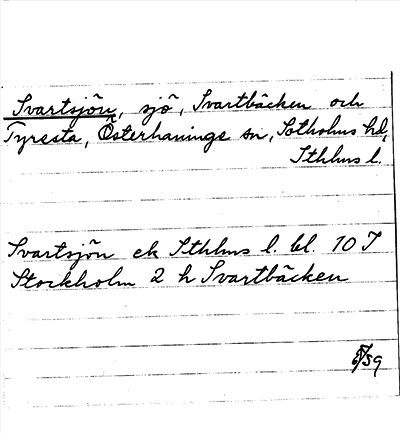 Svartsjön, sjö, Svartbäcken och
Tyresta, Österhaninge sn, Sotholms hd,
Sthlms l.
Svartsjön ek Sthlms l. bl. 10 I
Stockholm 2 h Svartbäcken